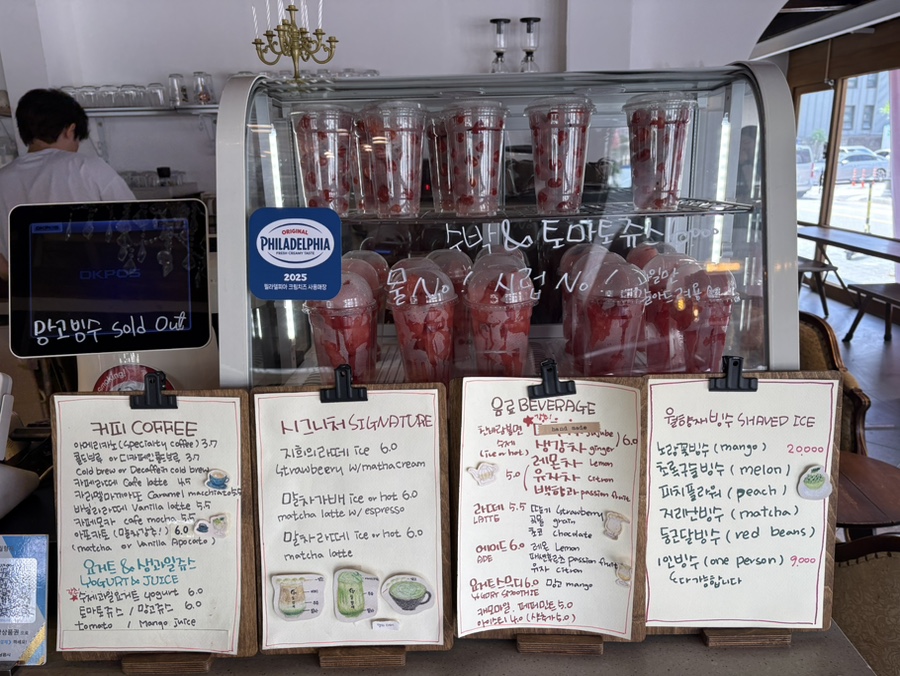 ORIGINAL
PHILADELPHIA
FRESH CREAMY TASTE
2025
필라델피아 크림치즈 사용매장
DKPOS
망고빙수 Sold Out
수박 & 토마토쥬스
물 No! 시럽 No!
커피 COFFEE
아메리카노 (Specialty coffee) 3.7
콜드브루 or 디카페인콜드브루 3.7
Cold brew or Decaffein cold brew
카페라떼 Cafe latte 4.5
카라멜마끼아또 Caramel macchiato 5.5
바닐라라떼 Vanilla latte 5.5
카페모카 cafe mocha 5.5
아포카토 6.0
(matcha or Vanilla Apocato)
요거트 & 생과일쥬스
YOGURT & JUICE
수제과일요거트 yogurt 6.0
토마토쥬스 / 망고쥬스 6.0
tomato / Mango juice
시그니처 SIGNATURE
지희의라떼 ice 6.0
Strawberry w/matcha cream
말차카페 ice or hot 6.0
matcha latte w/ espresso
말차라떼 ice or hot 6.0
matcha latte
음료 BEVERAGE
hand made
수제
(ice or hot)
생강차 ginger 6.0
레몬차 Lemon
유자차 citron
백향과 passion fruit
5.0
라떼 5.5
LATTE
딸기 strawberry
곡물 grain
초코 chocolate
에이드 6.0
ADE
레몬 Lemon
패션후르츠 passion fruit
유자 citron
요거트스무디 6.0 망고 mango
YOGURT SMOOTHIE
캐모마일, 페퍼민트 5.0
아이스티 4.0
빙수 SHAVED ICE
노랑꽃빙수 (mango) 20000
초록구슬빙수 (melon)
피치플라워 (peach)
지리산빙수 (matcha)
둥근달빙수 (red beans)
1인빙수 (one person) 9,000
다 가능합니다